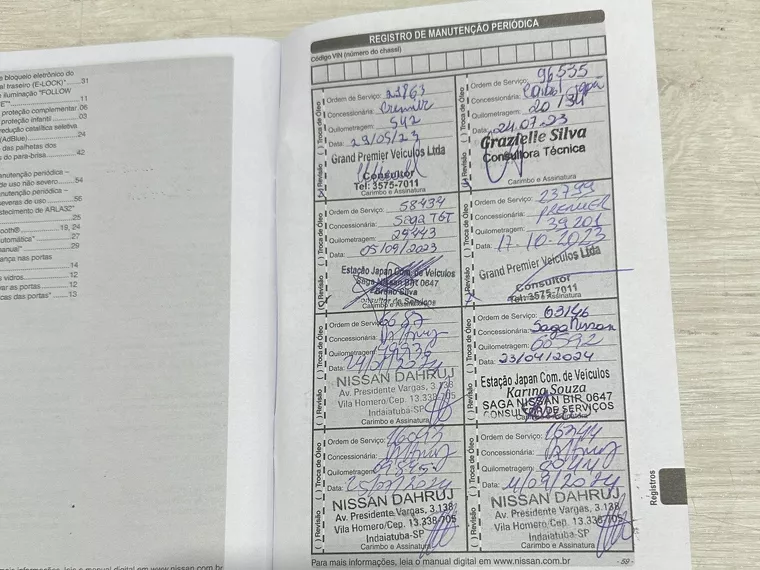 e bloqueio eletrônico do
al traseiro (E-LOCK)" 31
e iluminação "FOLLOW
E" 11
proteção complementar 06
proteção infantil 03
redução catalítica seletiva
(AdBlue) 24
das palhetas dos
do para-brisa 42
anutenção periódica –
de uso não severo 54
anutenção periódica –
severas de uso 56
stecimento de ARLA32"
25
ooth® 19, 24
utomática" 27
anual" 29
ança nas portas
14
s vidros 12
var as portas" 12
cas das portas" 13
mais informações, leia o manual digital em www.nissan.com.br
REGISTRO DE MANUTENÇÃO PERIÓDICA
Código VIN (número do chassi)
( ) Revisão ( ) Troca de Óleo
Ordem de Serviço: 22863
Concessionária: Premier
Quilometragem: 542
Data: 29/05/23
Grand Premier Veículos Ltda
Consultor
Tel: 3575-7011
Carimbo e Assinatura
Revisão ( ) Troca de Óleo
Ordem de Serviço: 96535
Concessionária:
Quilometragem:
Data: 24.07.23
Grazielle Silva
Consultora Técnica
Carimbo e Assinatura
Revisão ( ) Troca de Óleo
Ordem de Serviço: 58434
Concessionária: Saga TGT
Quilometragem: 29443
Data: 05/09/2023
Estação Japan Com. de Veículos
Saga Nissan BIR 0647
Bruno Silva
Consultor de Serviços
Carimbo e Assinatura
Revisão ( ) Troca de Óleo
Ordem de Serviço: 23799
Concessionária: PREMIER
Quilometragem: 39201
Data: 17-10-2023
Grand Premier Veículos Ltda
Consultor
Tel: 3575-7011
Carimbo e Assinatura
( ) Revisão ( ) Troca de Óleo
Ordem de Serviço:
Concessionária:
Quilometragem:
Data:
NISSAN DAHRUJ
Av. Presidente Vargas, 3.138
Vila Homero/Cep. 13.338-705
Indaiatuba-SP
Carimbo e Assinatura
( ) Revisão ( ) Troca de Óleo
Ordem de Serviço: 63146
Concessionária: Saga Nissan
Quilometragem: 60592
Data: 23/04/2024
Estação Japan Com. de Veículos
Karina Souza
SAGA NISSAN BIR 0647
CONSULTOR DE SERVIÇOS
Carimbo e Assinatura
( ) Revisão ( ) Troca de Óleo
Ordem de Serviço:
Concessionária:
Quilometragem:
Data:
NISSAN DAHRUJ
Av. Presidente Vargas, 3.138
Vila Homero/Cep. 13.338-705
Indaiatuba-SP
Carimbo e Assinatura
( ) Revisão ( ) Troca de Óleo
Ordem de Serviço:
Concessionária:
Quilometragem:
Data:
NISSAN DAHRUJ
Av. Presidente Vargas, 3.138
Vila Homero/Cep. 13.338-705
Indaiatuba-SP
Carimbo e Assinatura
Registros
Para mais informações, leia o manual digital em www.nissan.com.br
- 59 -